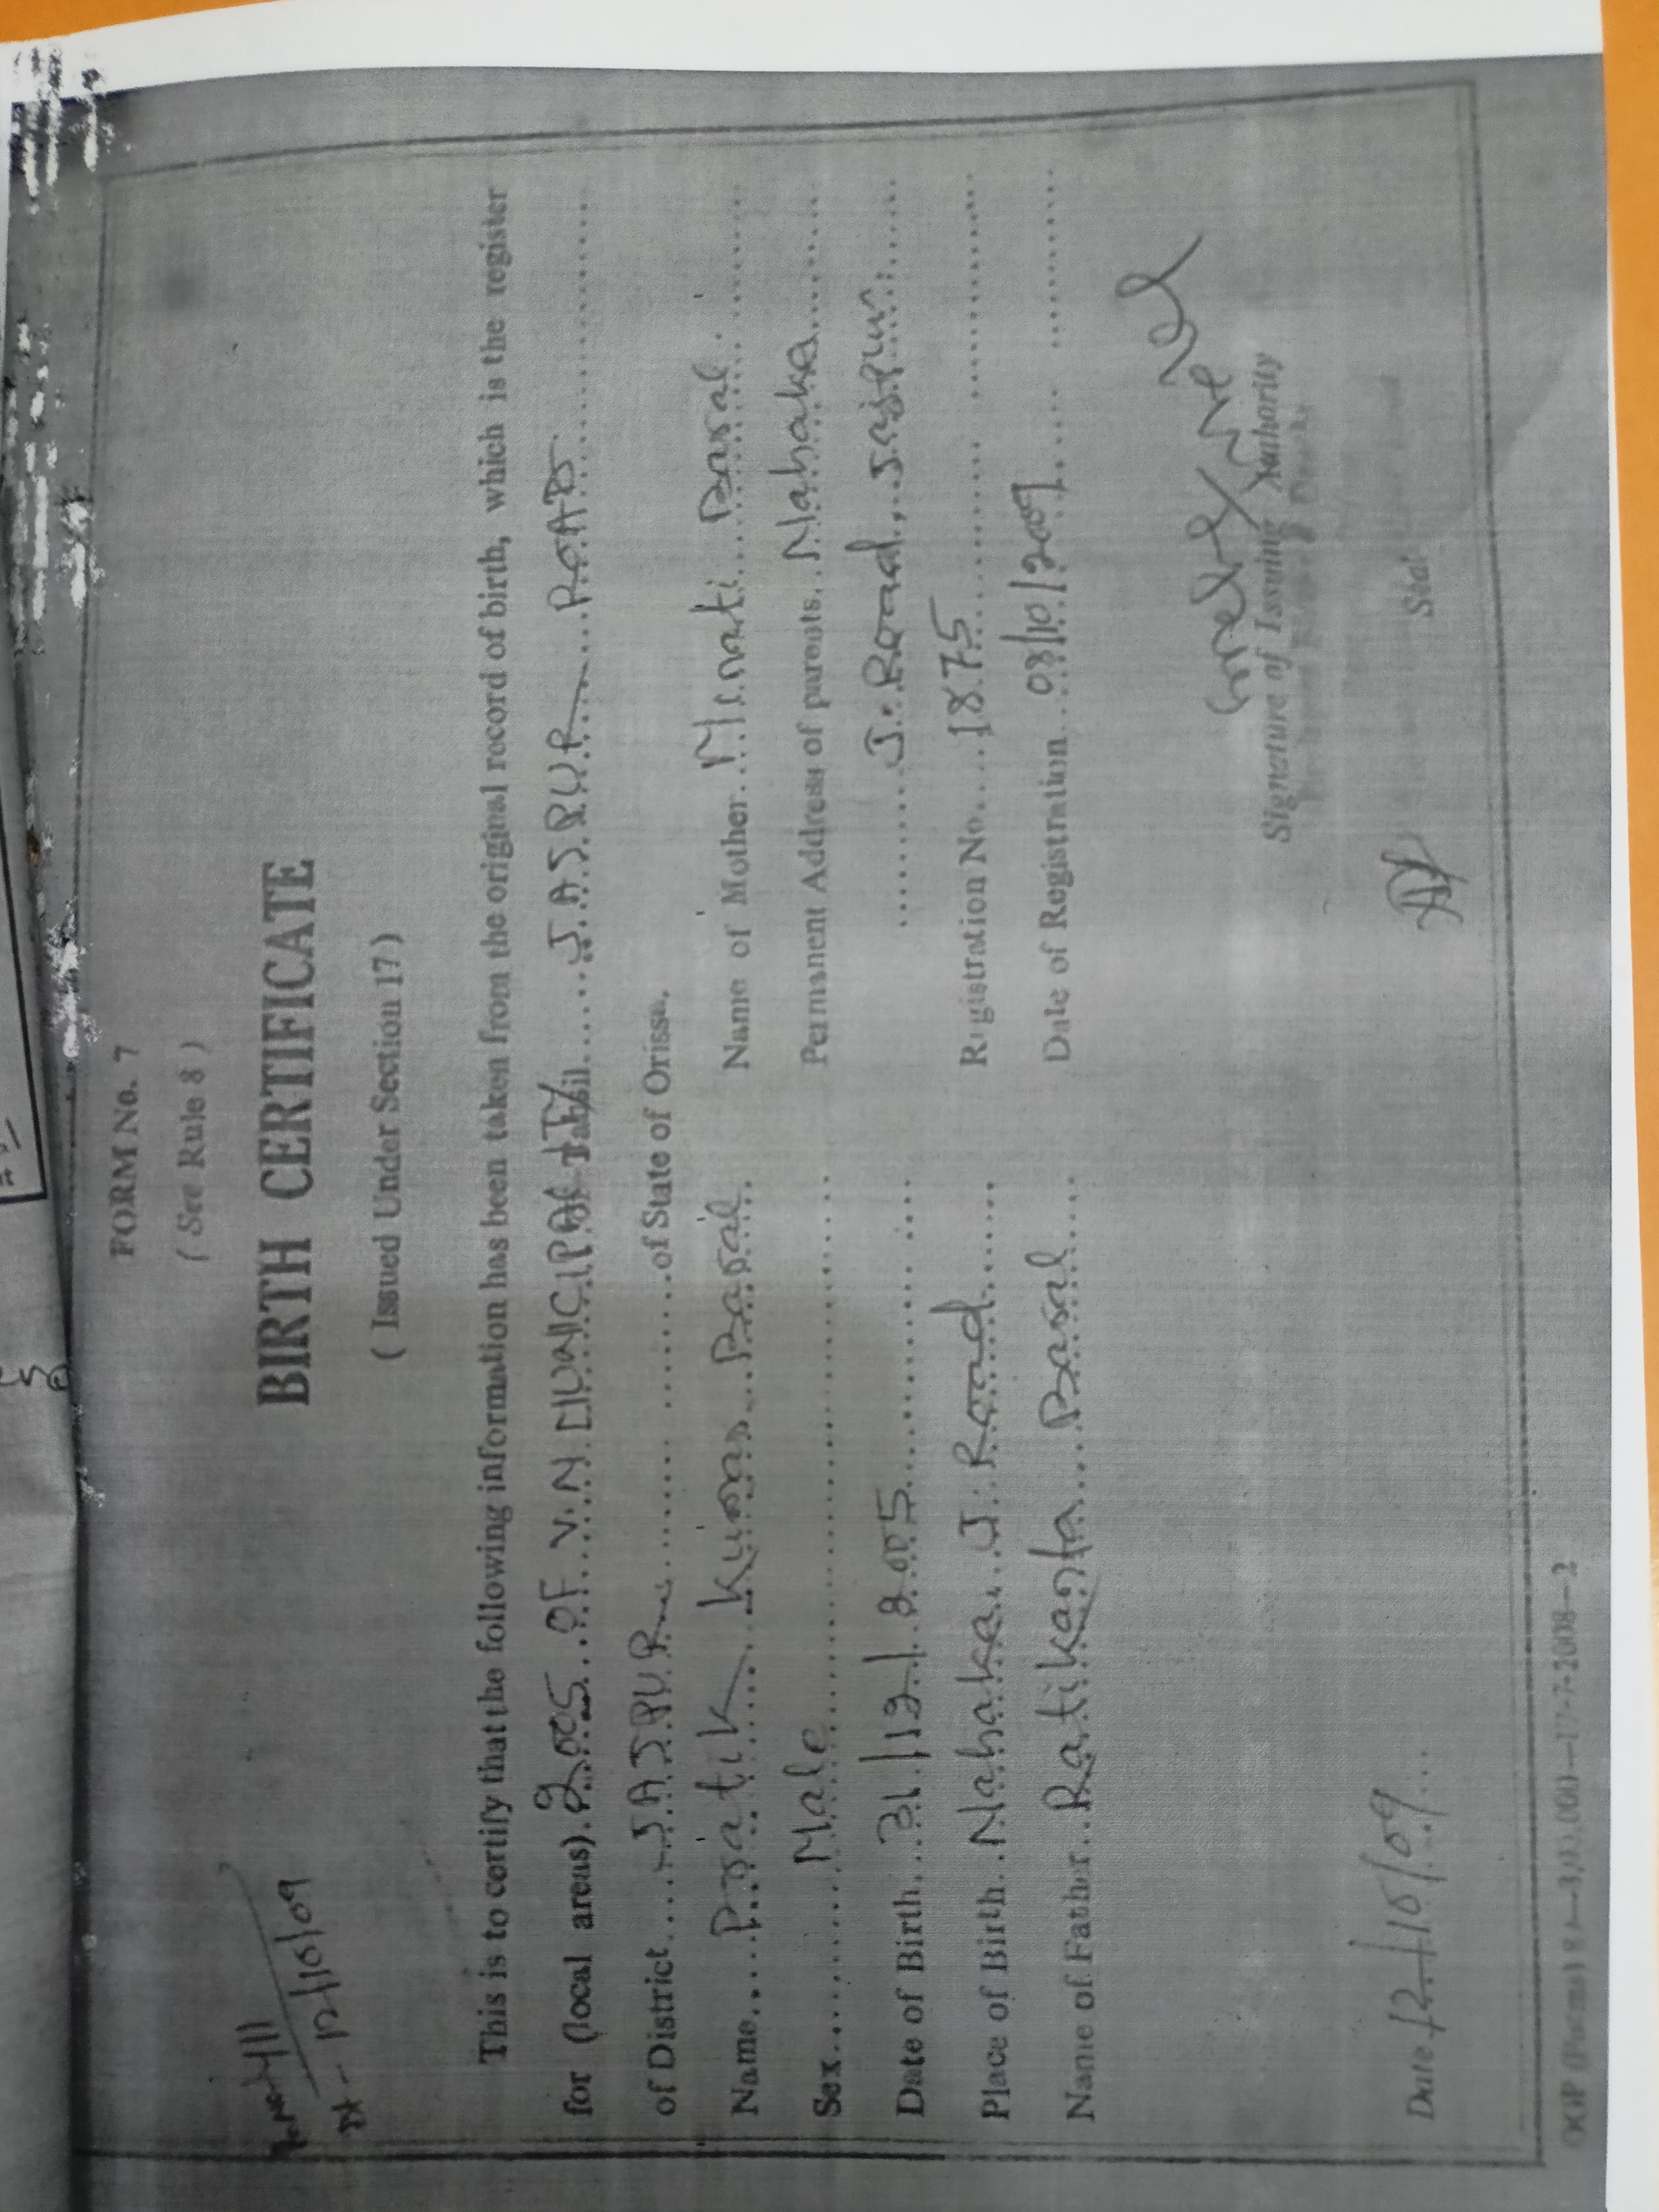 FORM No. 7
( See Rule 8 )
BIRTH CERTIFICATE
( Issued Under Section 17 )
411
Dt - 12/10/09
This is to certify that the following information has been taken from the original record of birth, which is the register
for (local areas) 2005 OF V.N MUNICIPALITY Tahsil JAJPUR ROAD
of District JAJPUR of State of Orissa.
Name Pratik Kumar Baral Name of Mother Minati Baral
Sex Male Permanent Address of parents. Nahaka
Date of Birth 31/12/2005 J. Road, Jajpur
Place of Birth Nahaka J. Road Registration No. 1875
Name of Father Ratikanta Baral Date of Registration 08/10/2009
Signature of Issuing Authority
Date 12/10/09
OGP (Forms) 17-7-2008—2